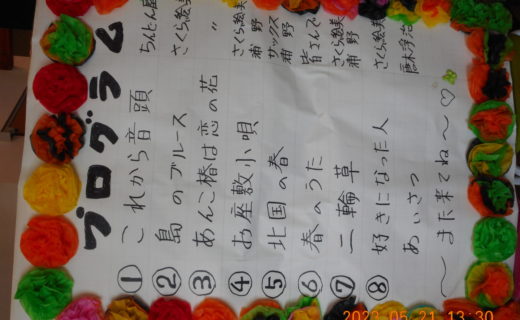 プログラム
① これから音頭 ちんとん
② 島のブルース さくら絵美
③ あんこ椿は恋の花 〃
④ お座敷小唄 さくら絵美 浦野
⑤ 北国の春 サックス 浦野
⑥ 春のうた 皆さんで
⑦ 二輪草 さくら絵美 浦野
⑧ 好きになった人 さくら絵美
あいさつ
〜また来てね〜♡
2023.05.21 13:30